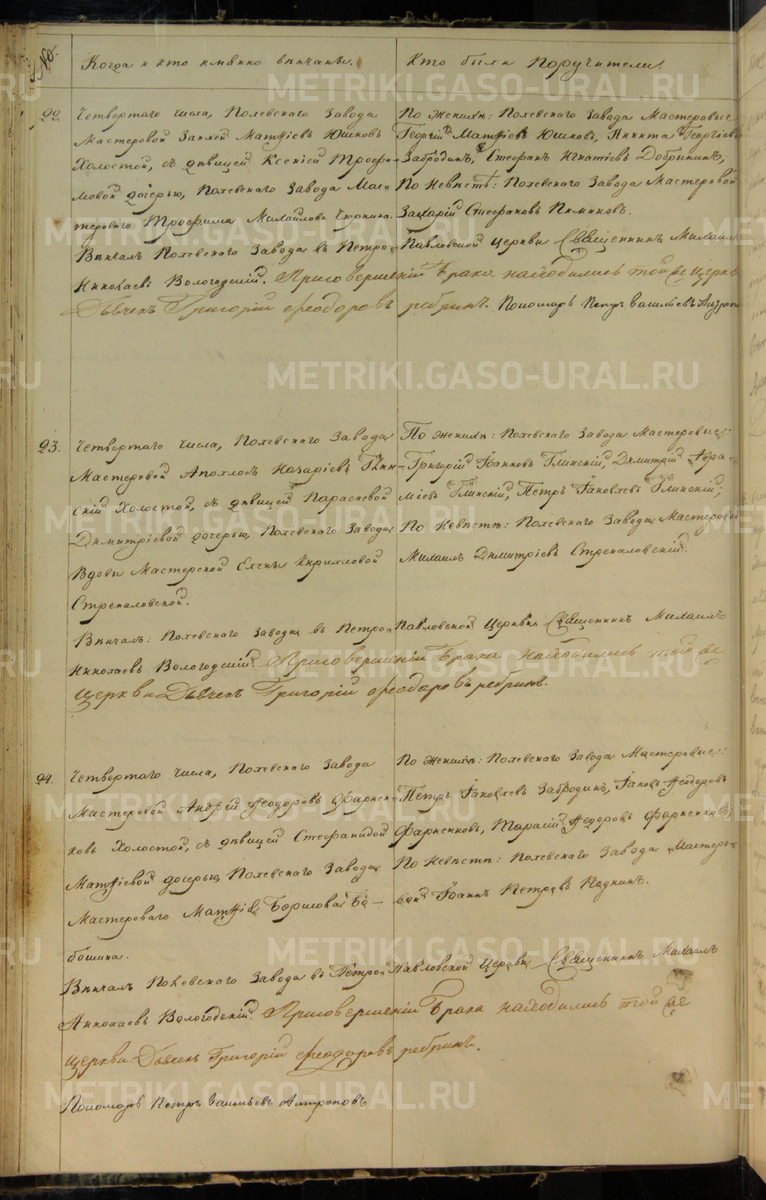 №.
Когда и кто имянно вѣнчанъ.
Кто были Поручители.
22.
Четвертаго числа, Полевскаго Завода
Мастеровой Матѳіевъ Юшковъ
Холостой, съ дѣвицей Ксеніей Трофи-
мовой дочерью, Полевскаго Завода Мас-
тероваго Трофима Михайлова
Вѣнчалъ Полевскаго Завода въ Петро-
Николаевъ Вологодскій. Приговершеніи Брака находились той же церкв
Дьячекъ Григорій Ѳеодоровъ ребринъ. Пономарь Петръ Васильевъ Антропо
По Женихѣ: Полевскаго Завода Мастеровые
Георгій Матѳіевъ Юшковъ, Никита Георгіевъ
Забродинъ, Стефанъ Игнатіевъ Добрынинъ,
По Невѣстѣ: Полевскаго Завода Мастеровой
Захарій Стефановъ Пименовъ.
Павловской Церкви Священникъ Михаилъ
23.
Четвертаго числа, Полевскаго Завода
Мастеровой Аполлосъ Назаріевъ Глин-
скій Холостой, съ дѣвицей Параскевой
Димитріевой дочерью, Полевскаго Завода
Вдовы Мастерской Елены Кирилловой
Стрекаловской.
Вѣнчалъ: Полевскаго Завода въ Петро-
Николаевъ Вологодскій. Приговершеніи Брака находились той же
церкви Дьячекъ Григорій Ѳеодоровъ ребринъ.
По Женихѣ: Полевскаго Завода Мастеровые:
Григорій Іоанновъ Глинскій, Димитрій Авра-
міевъ Глинскій, Петръ Іаковлевъ Глинскій;
По Невѣстѣ: Полевскаго Завода Мастеровой
Михаилъ Димитріевъ Стрекаловскій.
Павловской Церкви Священникъ Михаилъ
24.
Четвертаго числа, Полевскаго Завода
Мастеровой Андрей Ѳеодоровъ Фарнен-
ковъ Холостой, съ дѣвицей Стефанидой
Матѳіевой дочерью, Полевскаго Завода
Мастероваго Матѳія Борисова Ба-
бошина.
Вѣнчалъ Полевскаго Завода въ Петро-
Николаевъ Вологодскій. Приговершеніи Брака находились той же
церкви Дьячекъ Григорій Ѳеодоровъ ребринъ.
Пономарь Петръ Васильевъ Антроповъ
По Женихѣ: Полевскаго Завода Мастеровые:
Петръ Іаковлевъ Забродинъ, Іаковъ Ѳеодоровъ
Фарненковъ, Тарасій Ѳедоровъ Фарненковъ,
По Невѣстѣ: Полевскаго Завода Мастеро-
вой Іоаннъ Петровъ
Павловской Церкви Священникъ Михаилъ
METRIKI.GASO-URAL.RU